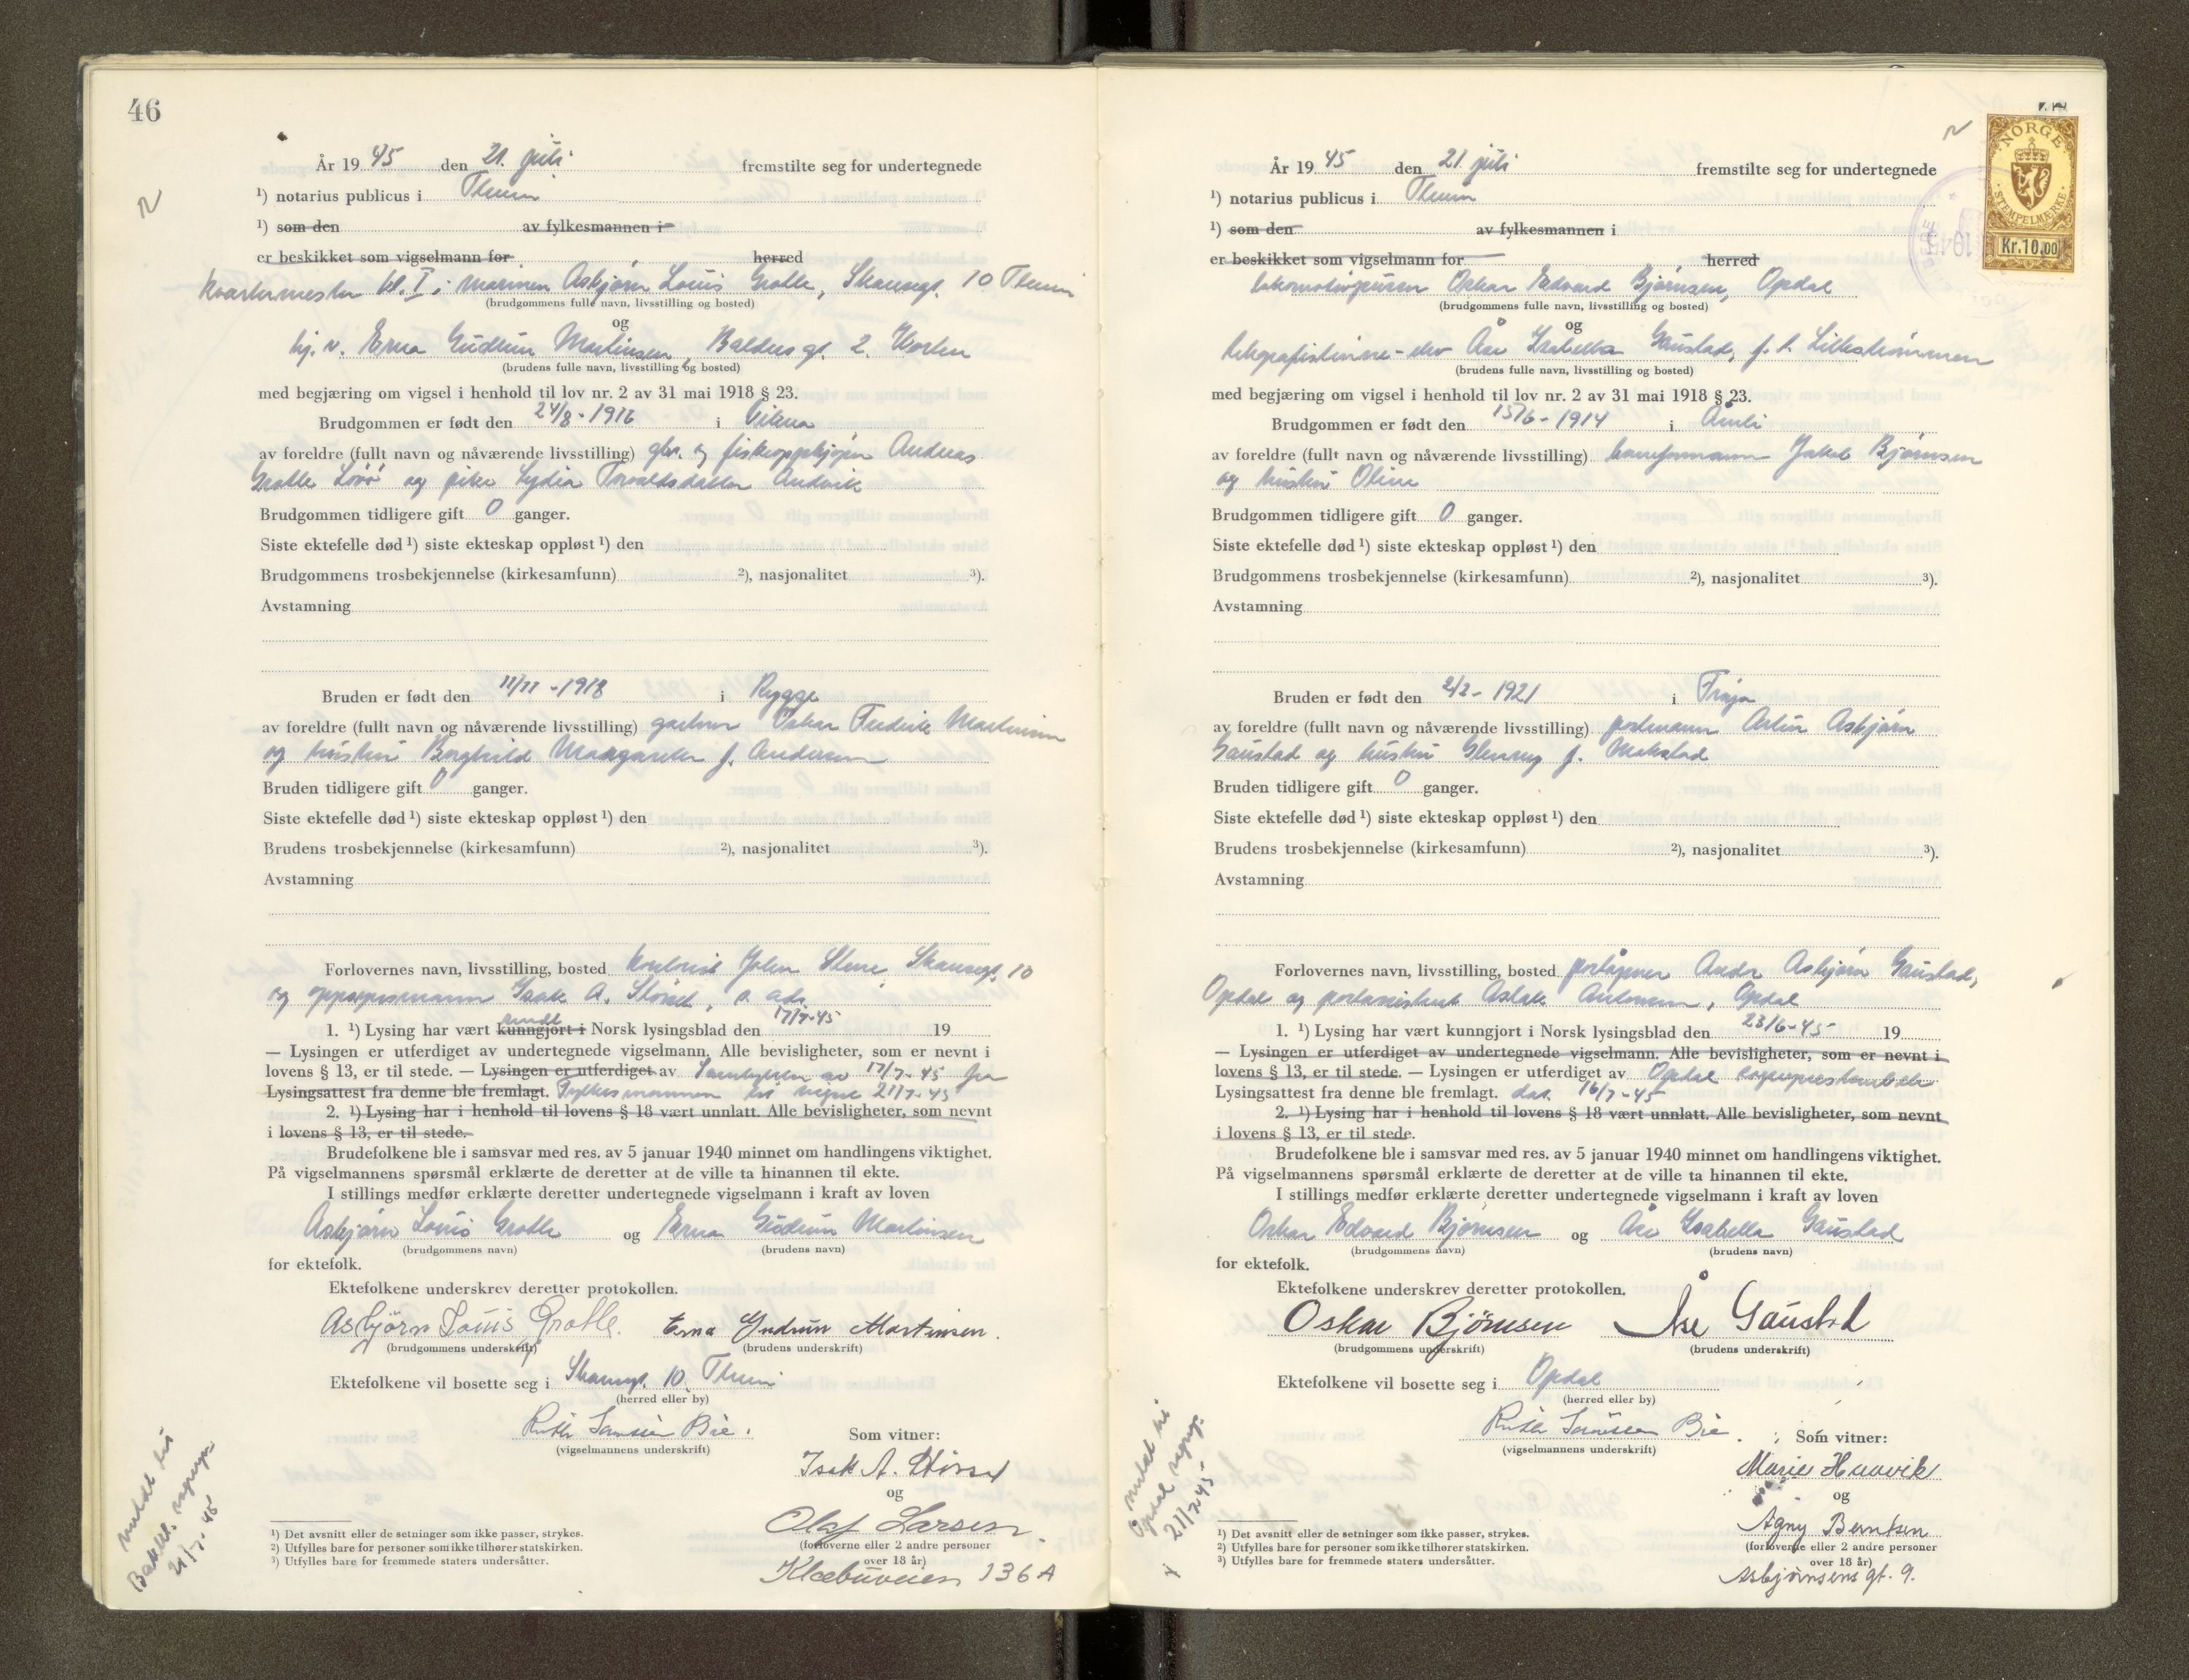 46
År 1945 den 21. juli fremstilte seg for undertegnede
¹) notarius publicus i Theim
¹) som den av fylkesmannen i
er beskikket som vigselmann for herred
kvartermester kl. I i marinen Asbjørn Louis Grotle, Skansegt. 10 Theim
(brudgommens fulle navn, livsstilling og bosted)
og
hj. v. Erna Gudrun Martinsen, Baldersgt. 2. Horten
(brudens fulle navn, livsstilling og bosted)
med begjæring om vigsel i henhold til lov nr. 2 av 31 mai 1918 § 23.
Brudgommen er født den 24/8-1916 i Vikna
av foreldre (fullt navn og nåværende livsstilling) gbr. og fiskeoppkjøper Andreas
Grotle Lövö og pike Lydia Torvaldsdatter Andvik
Brudgommen tidligere gift 0 ganger.
Siste ektefelle død ¹) siste ekteskap oppløst ¹) den
Brudgommens trosbekjennelse (kirkesamfunn) ²), nasjonalitet ³).
Avstamning
Bruden er født den 11/11-1918 i Rygge
av foreldre (fullt navn og nåværende livsstilling) gartner Oskar Fredrik Martinsen
og hustru Borghild Margarethe f. Andersen
Bruden tidligere gift 0 ganger.
Siste ektefelle død ¹) siste ekteskap oppløst ¹) den
Brudens trosbekjennelse (kirkesamfunn) ²), nasjonalitet ³).
Avstamning
Forlovernes navn, livsstilling, bosted John Skansegt. 10
og oppsynsmann Isak A. s. ads.
1. ¹) Lysing har vært sendt kunngjort i Norsk lysingsblad den 17/7-45 19
— Lysingen er utferdiget av undertegnede vigselmann. Alle bevisligheter, som er nevnt i
lovens § 13, er til stede. — Lysingen er utferdiget av Samtykke av 17/7-45 fra
Lysingsattest fra denne ble fremlagt. Fylkesmannen til vigsel 21/7-45
2. ¹) Lysing har i henhold til lovens § 18 vært unnlatt. Alle bevisligheter, som nevnt
i lovens § 13, er til stede.
Brudefolkene ble i samsvar med res. av 5 januar 1940 minnet om handlingens viktighet.
På vigselmannens spørsmål erklærte de deretter at de ville ta hinannen til ekte.
I stillings medfør erklærte deretter undertegnede vigselmann i kraft av loven
Asbjørn Louis Grotle og Erna Gudrun Martinsen
(brudgommens navn) (brudens navn)
for ektefolk.
Ektefolkene underskrev deretter protokollen.
Asbjörn Louis Grotle. Erna Gudrun Martinsen.
(brudgommens underskrift) (brudens underskrift)
Ektefolkene vil bosette seg i Skansegt. 10. Theim
(herred eller by)
Ruth Bie.
(vigselmannens underskrift)
Som vitner:
Isak A.
og
Olaf Larsen.
(forloverne eller 2 andre personer
over 18 år)
Klæbuveien 136 A
meldt til
Bakkl. sogn
21/7-45
¹) Det avsnitt eller de setninger som ikke passer, strykes.
²) Utfylles bare for personer som ikke tilhører statskirken.
³) Utfylles bare for fremmede staters undersåtter.
NORGE
STEMPELMERKE
Kr.10.00
År 1945 den 21. juli fremstilte seg for undertegnede
¹) notarius publicus i Theim
¹) som den av fylkesmannen i
er beskikket som vigselmann for herred
Oskar Edvard Bjørnsen, Opdal
(brudgommens fulle navn, livsstilling og bosted)
og
telegrafistinne-elev Åse Isabella Gaustad, f. t. Lillestrømmen
(brudens fulle navn, livsstilling og bosted)
med begjæring om vigsel i henhold til lov nr. 2 av 31 mai 1918 § 23.
Brudgommen er født den 15/6-1914 i Åmli
av foreldre (fullt navn og nåværende livsstilling) baneformann Jakob Bjørnsen
og hustru Oline
Brudgommen tidligere gift 0 ganger.
Siste ektefelle død ¹) siste ekteskap oppløst ¹) den
Brudgommens trosbekjennelse (kirkesamfunn) ²), nasjonalitet ³).
Avstamning
Bruden er født den 2/2-1921 i
av foreldre (fullt navn og nåværende livsstilling) postmann Asbjørn
Gaustad og hustru f.
Bruden tidligere gift 0 ganger.
Siste ektefelle død ¹) siste ekteskap oppløst ¹) den
Brudens trosbekjennelse (kirkesamfunn) ²), nasjonalitet ³).
Avstamning
Forlovernes navn, livsstilling, bosted poståpner Asbjørn Gaustad,
Opdal og Aslak Opdal
1. ¹) Lysing har vært kunngjort i Norsk lysingsblad den 23/6-45 19
— Lysingen er utferdiget av undertegnede vigselmann. Alle bevisligheter, som er nevnt i
lovens § 13, er til stede. — Lysingen er utferdiget av Opdal sogneprestembede
Lysingsattest fra denne ble fremlagt. dat. 16/7-45
2. ¹) Lysing har i henhold til lovens § 18 vært unnlatt. Alle bevisligheter, som nevnt
i lovens § 13, er til stede.
Brudefolkene ble i samsvar med res. av 5 januar 1940 minnet om handlingens viktighet.
På vigselmannens spørsmål erklærte de deretter at de ville ta hinannen til ekte.
I stillings medfør erklærte deretter undertegnede vigselmann i kraft av loven
Oskar Edvard Bjørnsen og Åse Isabella Gaustad
(brudgommens navn) (brudens navn)
for ektefolk.
Ektefolkene underskrev deretter protokollen.
Oskar Bjørnsen Åse Gaustad
(brudgommens underskrift) (brudens underskrift)
Ektefolkene vil bosette seg i Opdal
(herred eller by)
Ruth Bie.
(vigselmannens underskrift)
Som vitner:
Marie
og
Agny Berntsen
(forloverne eller 2 andre personer
over 18 år)
Asbjørnsens gt. 9.
meldt til
Opdal sognepr.
21/7-45
¹) Det avsnitt eller de setninger som ikke passer, strykes.
²) Utfylles bare for personer som ikke tilhører statskirken.
³) Utfylles bare for fremmede staters undersåtter.